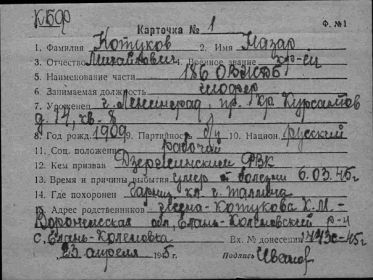 КБФ
Карточка № 1 Ф. №1
1. Фамилия Котуков 2. Имя Назар
3. Отчество Михайлович 4. Военное звание кр-ец
5. Наименование части 186
6. Занимаемая должность шофер
7. Уроженец г. Ленинград, пр. Кр. Курсантов
д. 14, кв. 8
8. Год рожд. 1909 9. Партийность б/п 10. Национ. русский
11. Соц. положение рабочий
12. Кем призван Дзержинским РВК
13. Время и причины выбытия умер от болезни 6.03.45г
14. Где похоронен Гарниз. кл. г. Таллина
15. Адрес родственников жена-Котукова К.М.-
Воронежская обл. Елань-Коленовский р-н
с. Елань-Коленовка Вх. № донесения 45г.
23 апреля 1945г. Подпись